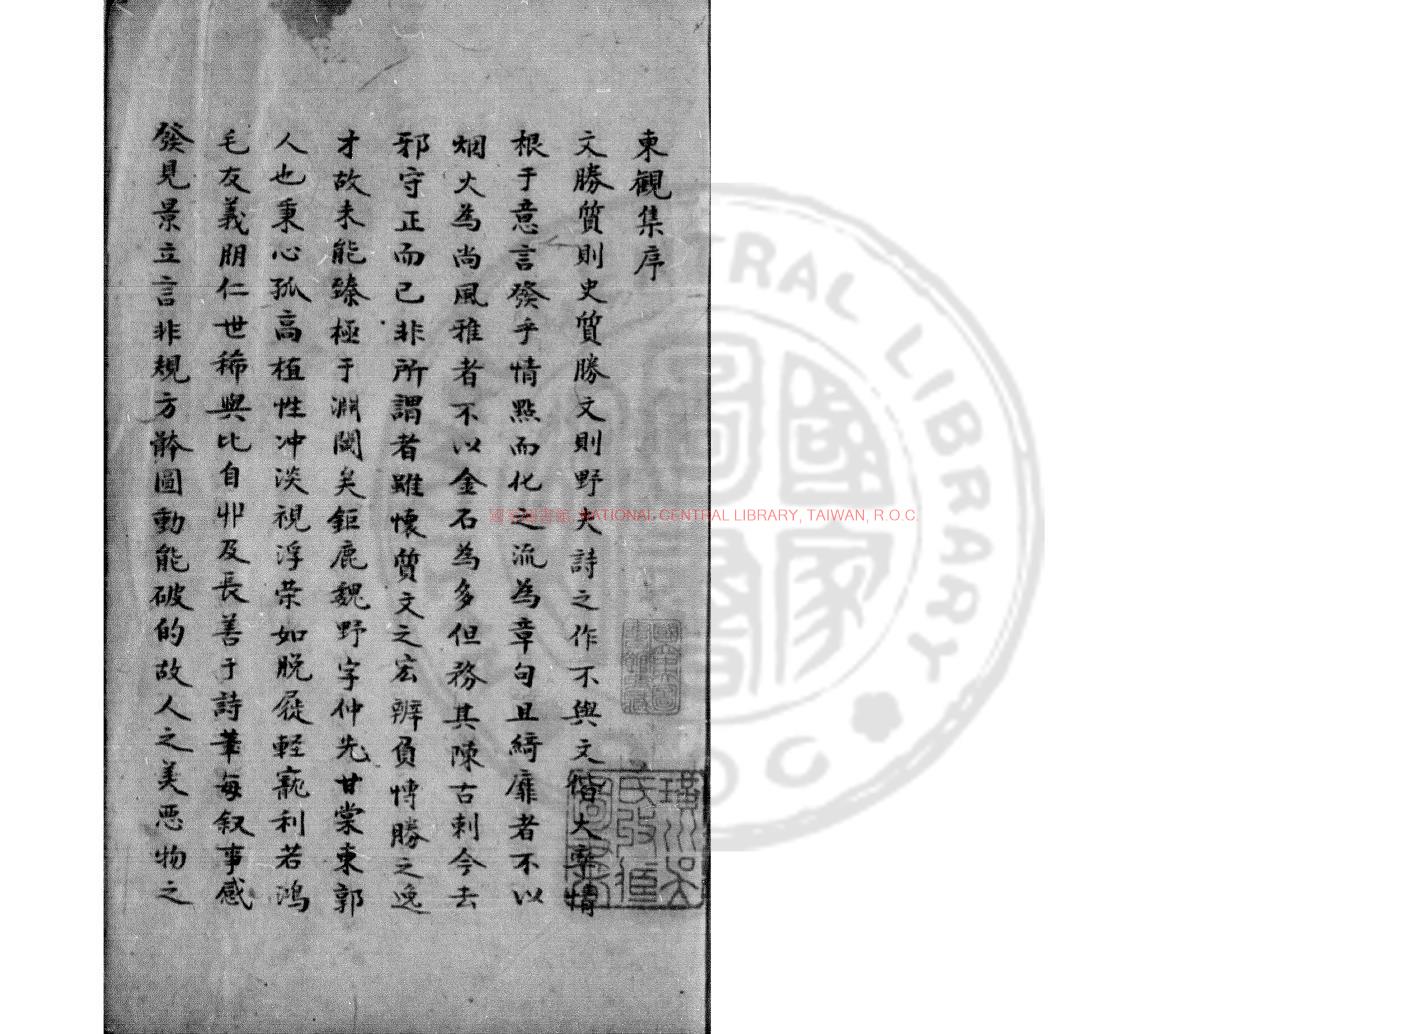 東觀集序
文勝質則史質勝文則野夫詩之作不與文偕大率情
根于意言發乎情點而化之流為章句且綺靡者不以
烟火為尚風雅者不以金石為多但務其陳古刺今去
邪守正而已非所謂者雖懷質文之宏辨負博勝之逸
才故未能臻極于淵閫矣鉅鹿魏野字仲先甘棠東郭
人也秉心孤高植性冲淡視浮荣如脫屣輕寵利若鴻
毛友義朋仁世稀與比自丱及長善于詩筆每叙事感
發見景立言非規方骱圓動能破的故人之美惡物之
國家圖書館, NATIONAL CENTRAL LIBRARY, TAIWAN, R.O.C.